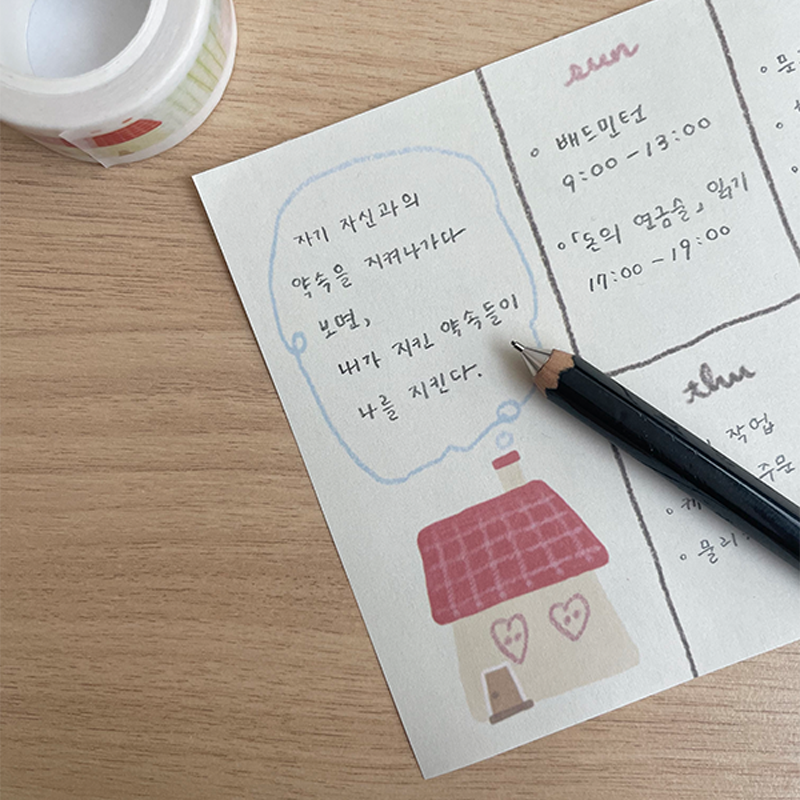 자기 자신과의
약속을 지켜나가다
보면,
내가 지킨 약속들이
나를 지킨다.
sun
◦ 배드민턴
9:00 - 13:00
◦ 「돈의 연금술」 읽기
17:00 - 19:00
thu
작업
주문